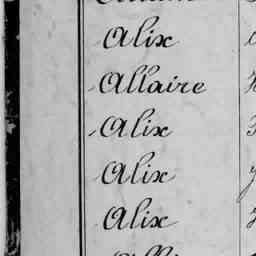 Alix
Allaire
Alix
Alix
Alix